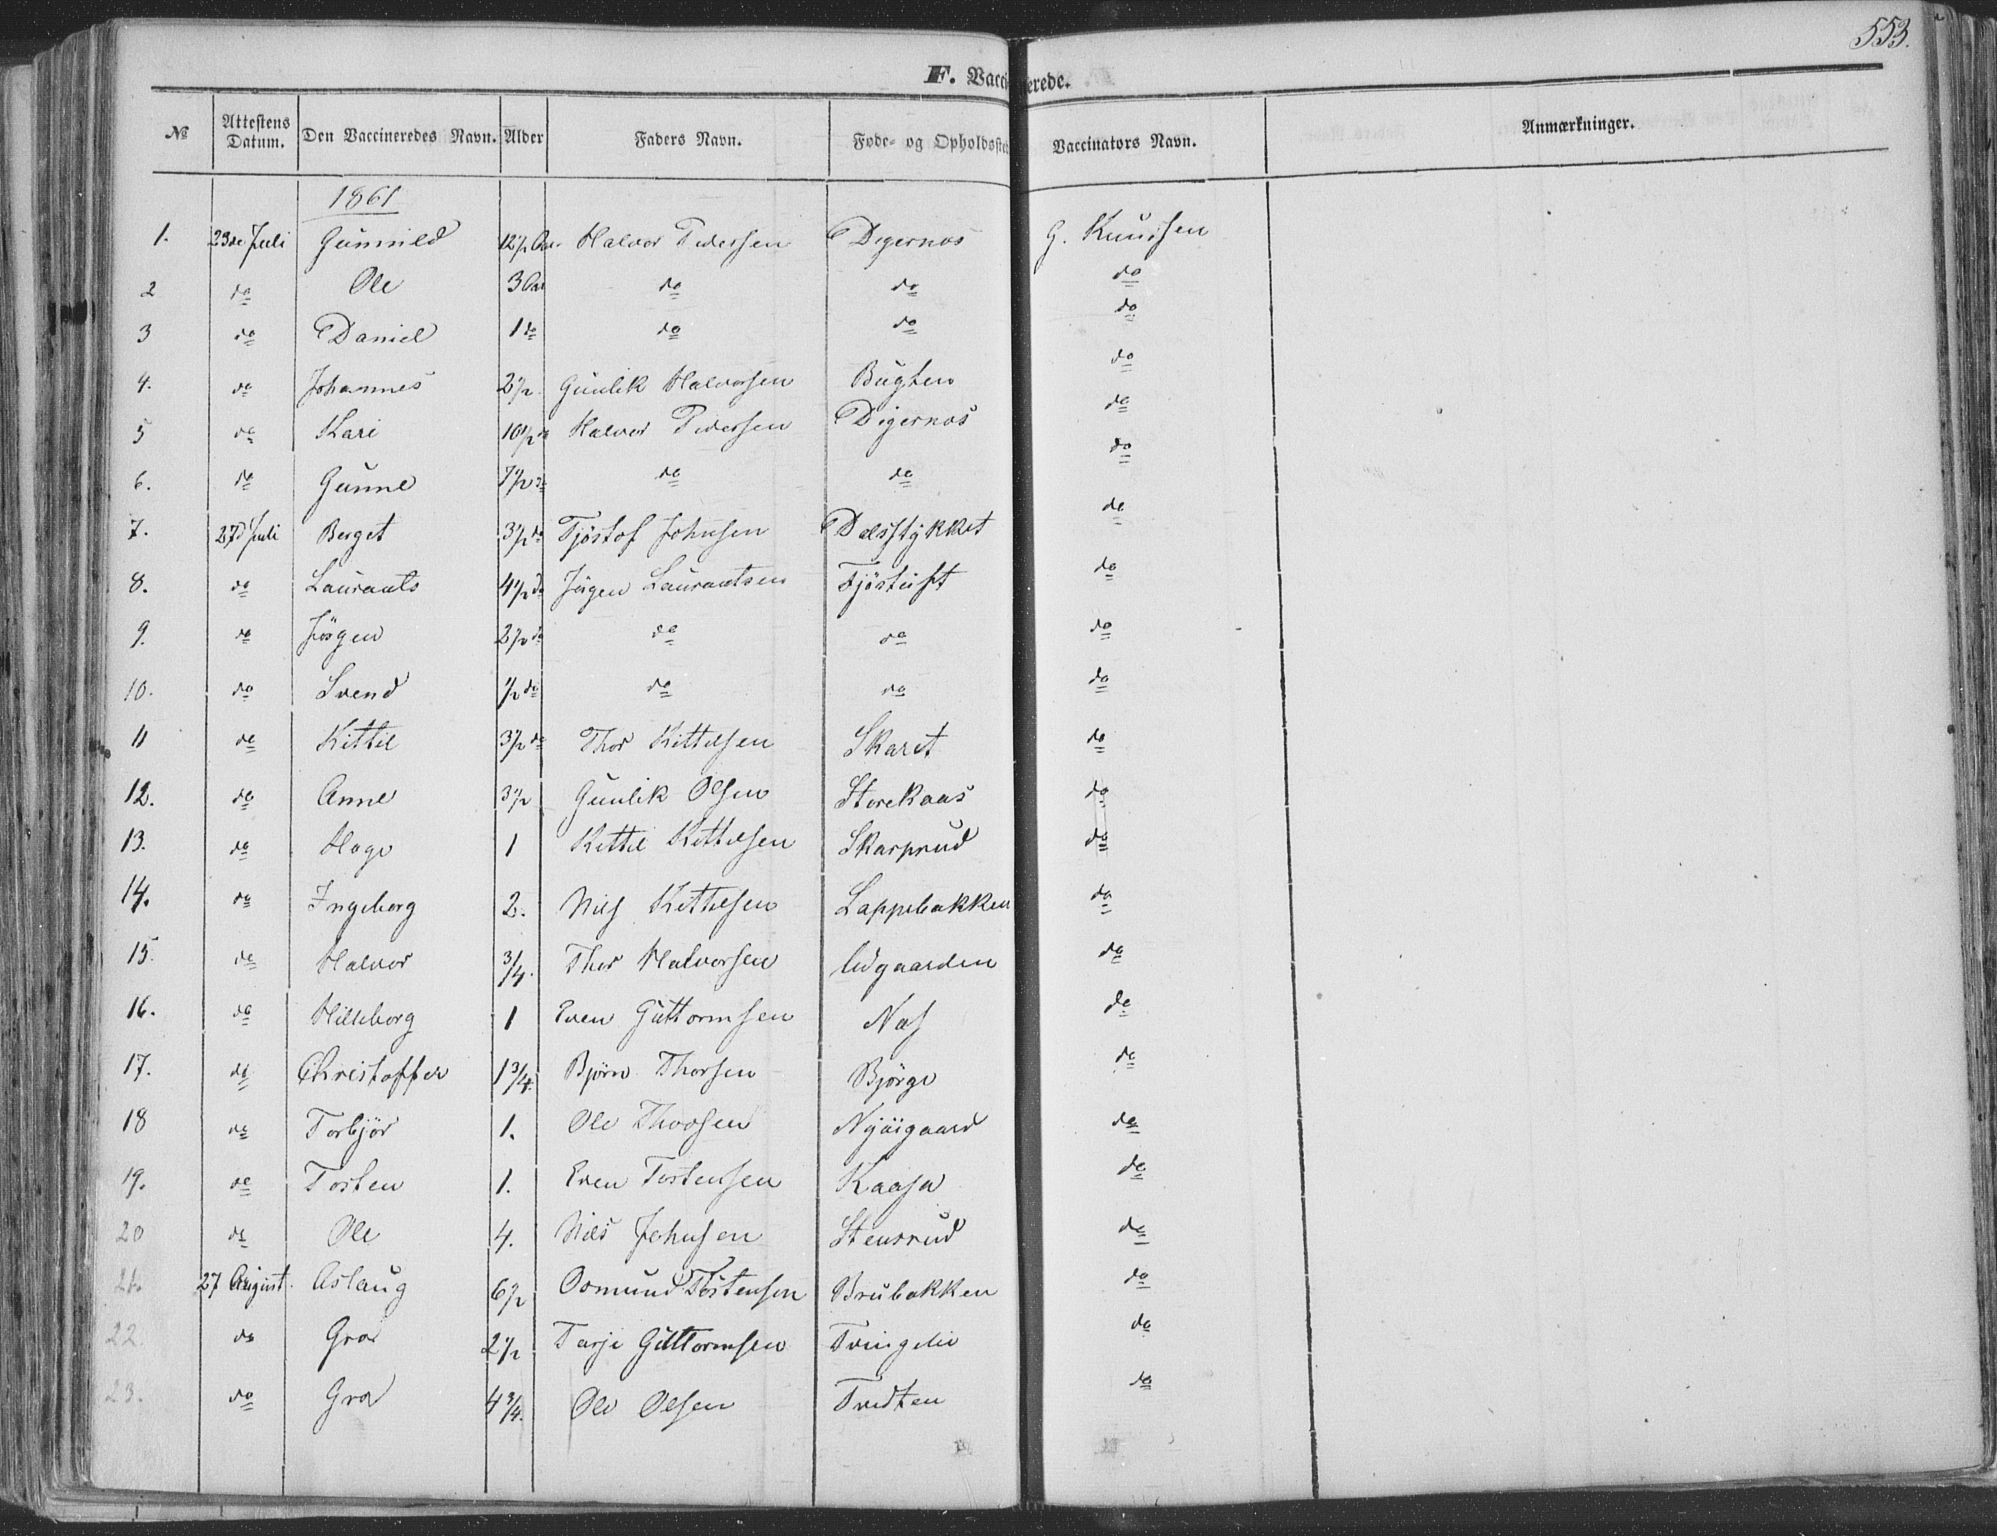 553.
F. Vaccinerede.
№ Attestens Datum. Den Vaccineredes Navn. Alder Faders Navn. Føde- og Opholdssted Vaccinators Navn. Anmærkninger.
1861
1. 23de Juli Gunnild 12½ Aar Halvor Pedersen Digernæs G. Knudsen
2 do Ole 3 Aar do do do
3 do Daniel 1 do do do do
4. do Johannes 2½ Gunlik Halvorsen Bugten do
5 do Kari 10½ do Halvor Pedersen Digernæs do
6. do Gunne 7½ do do do do
7. 27d Juli Berget 3½ do Tjøstof Johnsen Dalsstykket do
8. do Laurants 4½ do Jørgen Laurantsen Tjøstuft do
9. do Jörgen 2½ do do do do
10. do Svend ½ do do do do
11 do Kittil 3½ do Thor Kittelsen Skaret do
12. do Anne 3½ Gunlik Olsen Storekaas do
13. do Hage 1 Kittil Kittelsen Skarprud do
14. do Ingeborg 2. Nils Kittelsen Lappebakken do
15. do Halvor 3/4. Thor Halvorsen Udgaarden do
16. do Hilleborg 1 Even Guttormsen Næs do
17. do Christoffer 1 3/4. Bjørn Thorsen Bjørge do
18 do Torbjør 1. Ole Thorsen Nyøigaard do
19. do Tosten 1. Even Tostensen Kaasa do
20 do Ole 4. Nils Johnsen Stensrud do
21. 27 August. Aslaug 6½ Osmund Tostensen Brubakken do
22. do Gro 2½ Tarje Guttormsen Tveigelie do
23. do Gro 4 3/4. Ole Olsen Tvedten do